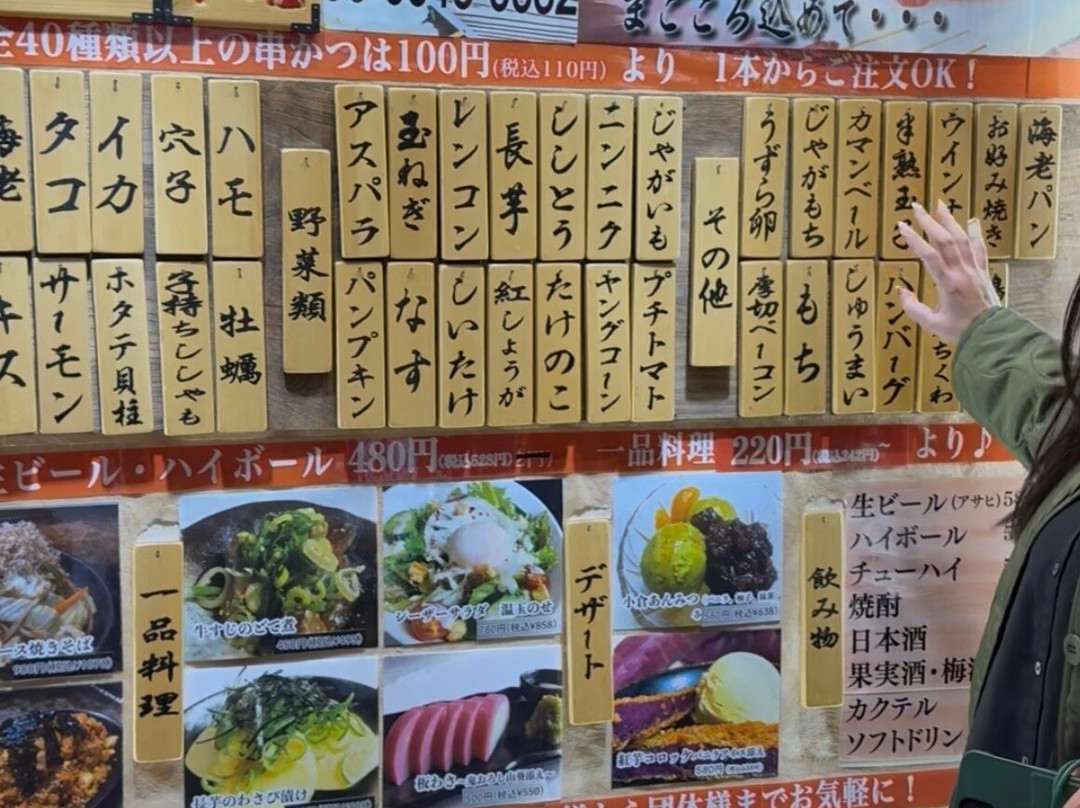 まごころ込めて・・・・
全40種類以上の串かつは100円(税込110円)より 1本からご注文OK!
海老
タコ
イカ
穴子
ハモ
キス
サーモン
ホタテ貝柱
子持ちししゃも
牡蠣
野菜類
アスパラ
玉ねぎ
レンコン
長芋
ししとう
ニンニク
じゃがいも
パンプキン
なす
しいたけ
紅しょうが
たけのこ
ヤングコーン
プチトマト
その他
うずら卵
じゃがもち
カマンベール
半熟玉
ウインナ
お好み焼き
海老パン
厚切ベーコン
もち
しゅうまい
ハンバーグ
ちくわ
生ビール・ハイボール 480円(税込528円)
一品料理 220円(税込242円)~ より♪
ース焼きそば
一品料理
牛すじのどて煮
シーザーサラダ 温玉のせ
780円(税込¥858)
長芋のわさび漬け
板わさ~鬼おろし山葵添え~
500円(税込¥550)
デザート
小倉あんみつ
580円(税込¥638)
紅芋コロッケバニラアイス添え
580円
飲み物
生ビール(アサヒ)
ハイボール
チューハイ
焼酎
日本酒
果実酒・梅
カクテル
ソフトドリン
団体様までお気軽に!